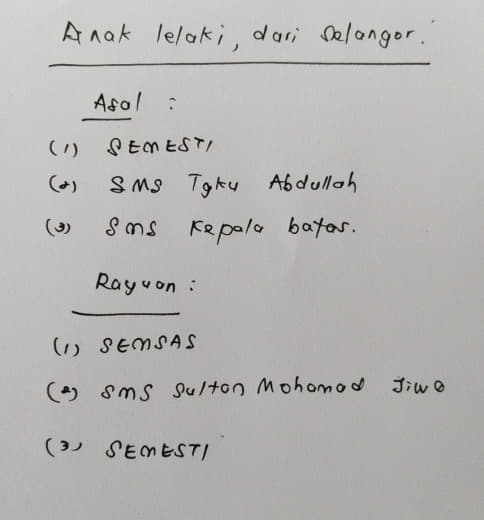 Anak lelaki, dari Selangor.
Asal :
(1) SEMESTI
(2) SMS Tgku Abdullah
(3) Sms Kepala batas.
Rayuan :
(1) SEMSAS
(2) SMS Sultan Mohamad Jiwa
(3) SEMESTI